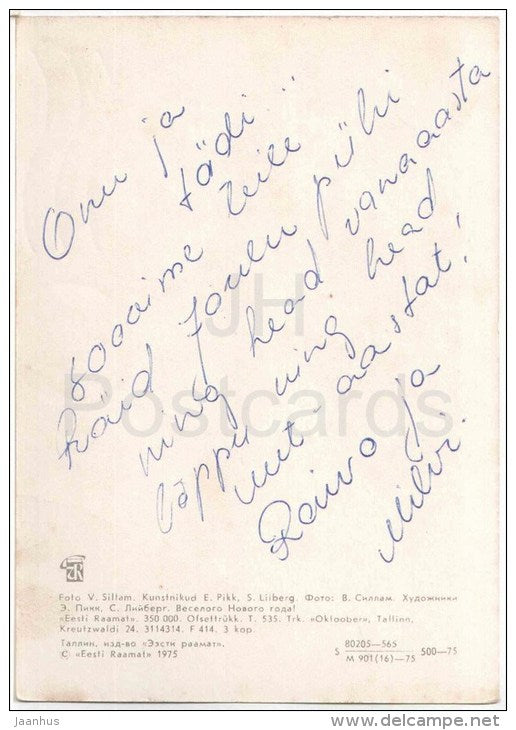 Onu ja
tädi!
Soovime teile
häid jõulu pühi
ning head vanaaasta
lõppu ning head
uut-aastat!
Raivo ja
Milvi.
JH
Postcards
Foto V. Sillam. Kunstnikud E. Pikk, S. Liiberg. Фото: В. Силлам. Художники
Э. Пикк, С. Лийберг. Веселого Нового года!
«Eesti Raamat». 350 000. Ofsettrükk. T. 535. Trk. «Oktoober», Tallinn,
Kreutzwaldi 24. 3114314. F 414. 3 кор.
Таллин, изд-во «Ээсти раамат».
© «Eesti Raamat» 1975
S 80205—565
M 901(16)—75 500—75
Jaanhus
www.delcampe.net